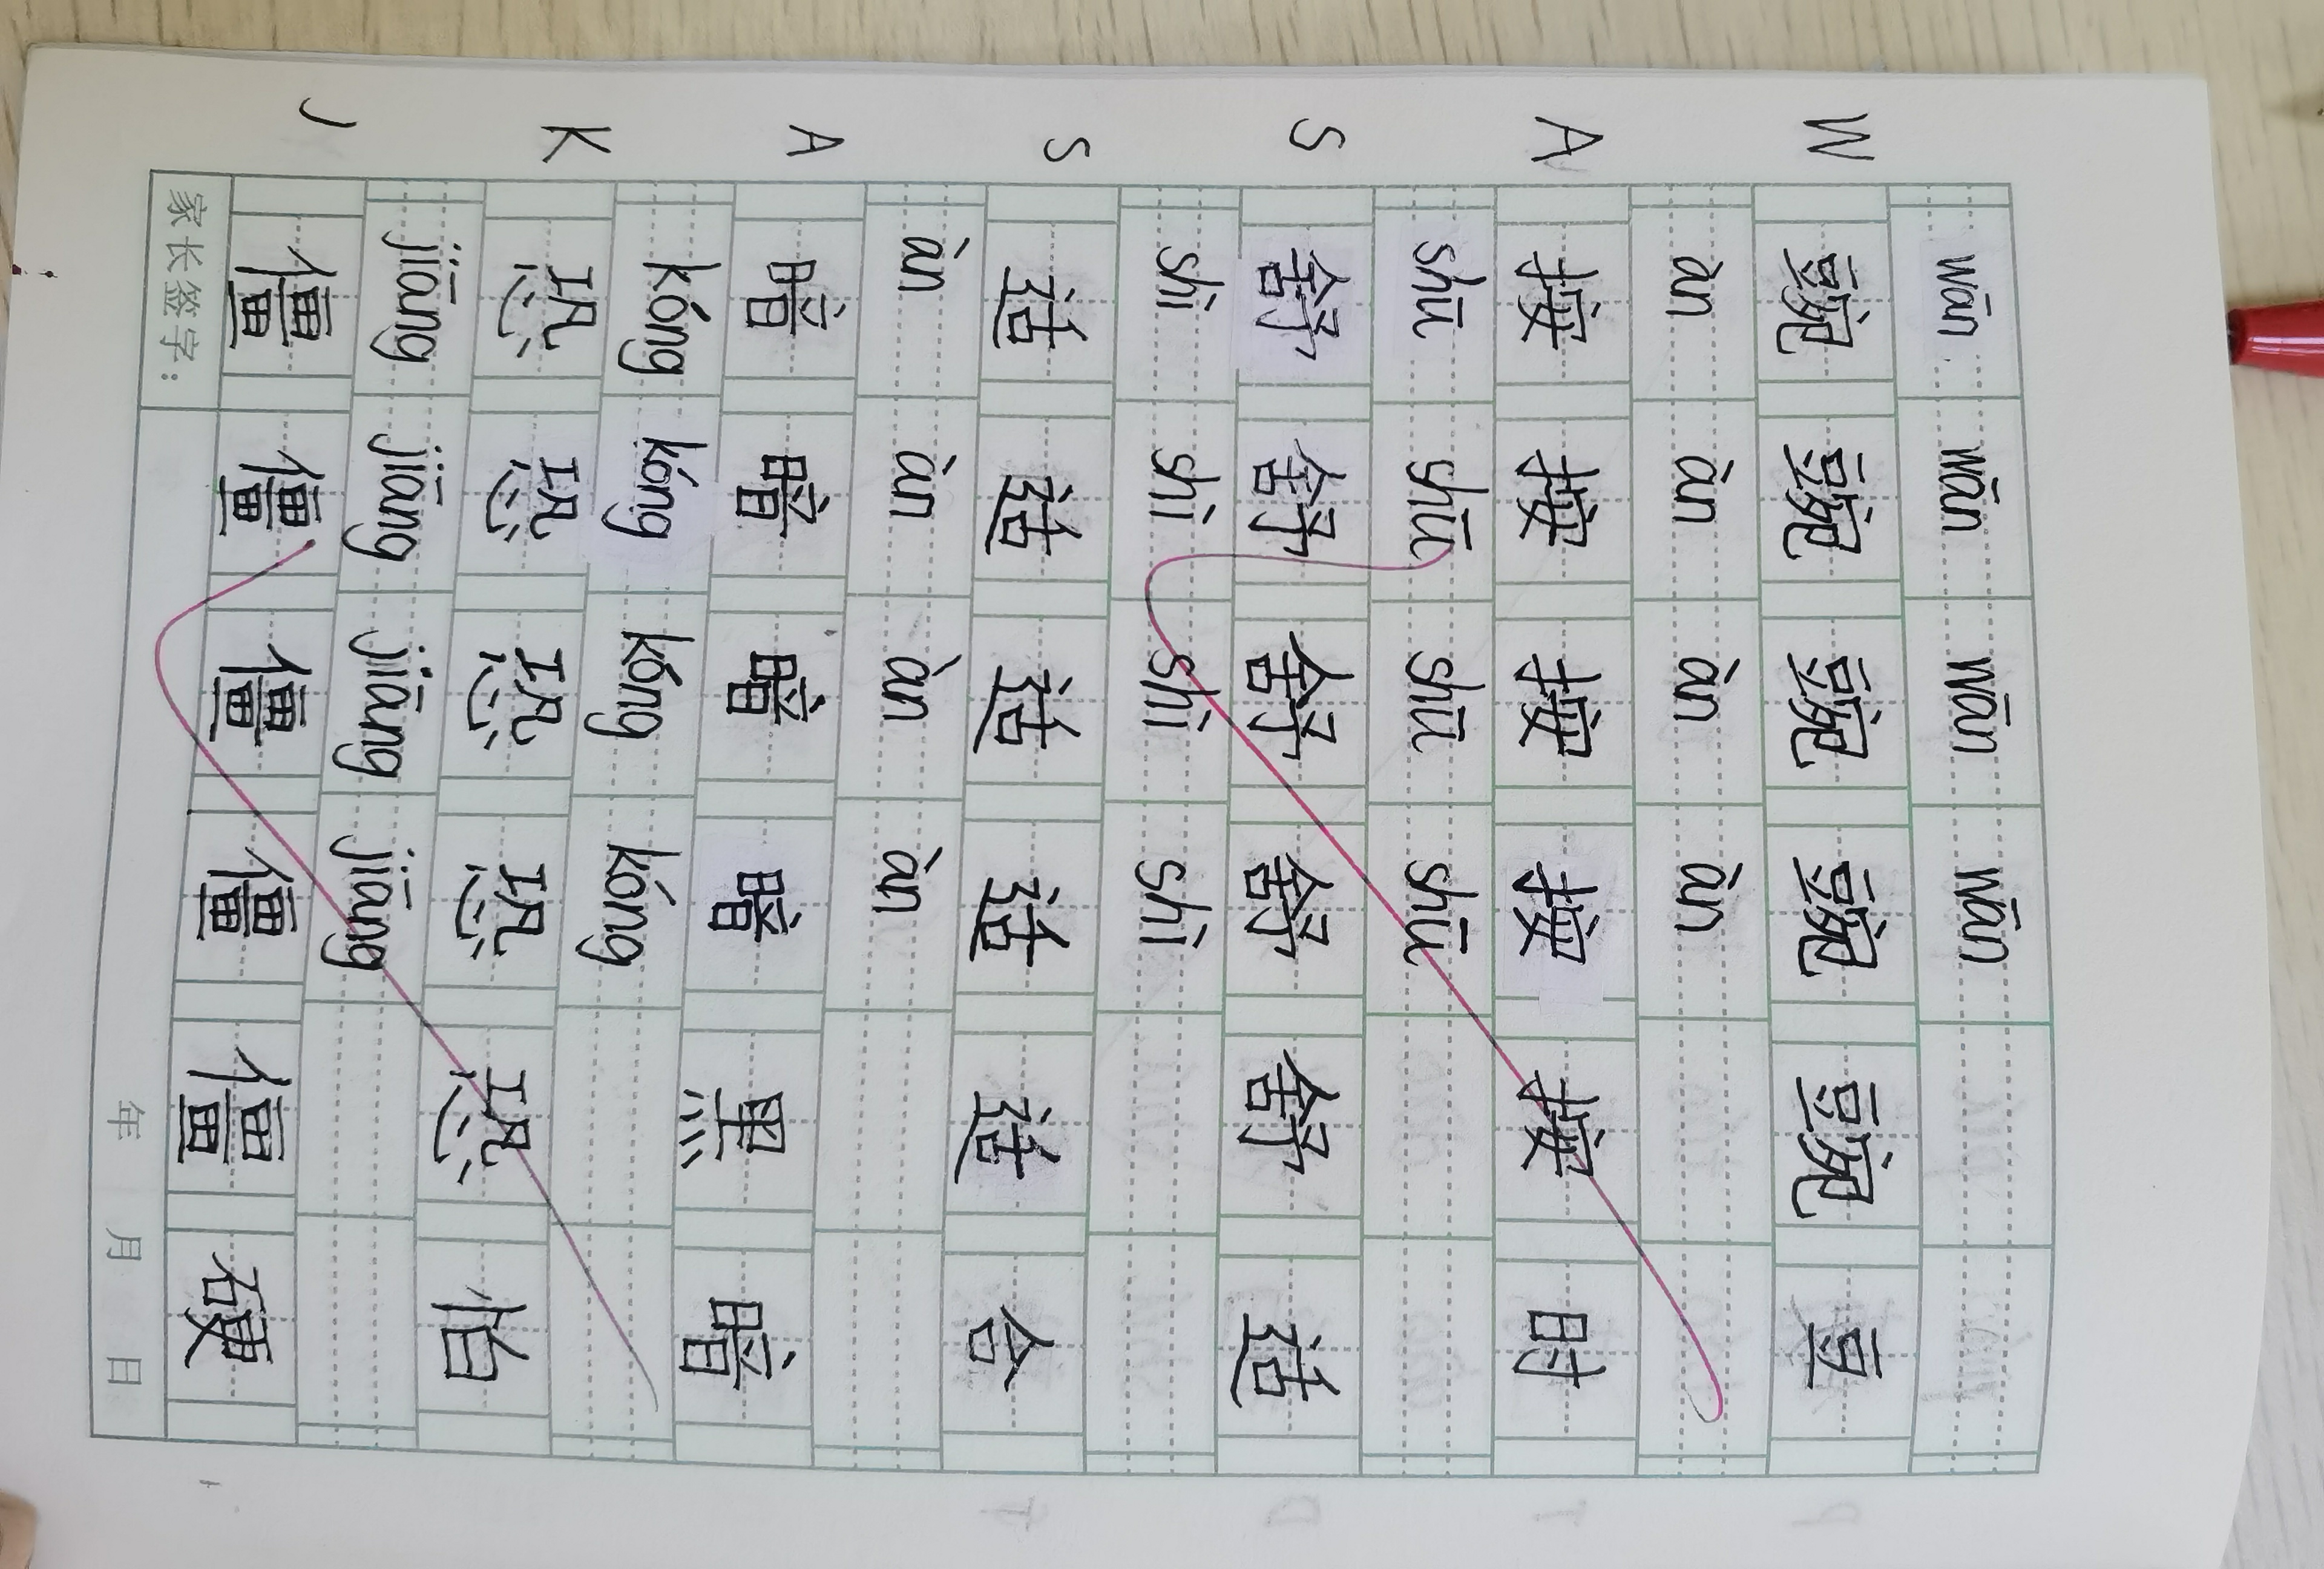 wān wān wān wān
W 豌 豌 豌 豌 豌 豆
àn àn àn àn
A 按 按 按 按 按 时
shū shū shū shū
S 舒 舒 舒 舒 舒 适
shì shì shì shì
S 适 适 适 适 适 合
àn àn àn àn
A 暗 暗 暗 暗 黑 暗
kǒng kǒng kǒng kǒng
K 恐 恐 恐 恐 恐 怕
jiāng jiāng jiāng jiāng
J 僵 僵 僵 僵 僵 硬
家长签字： 年 月 日